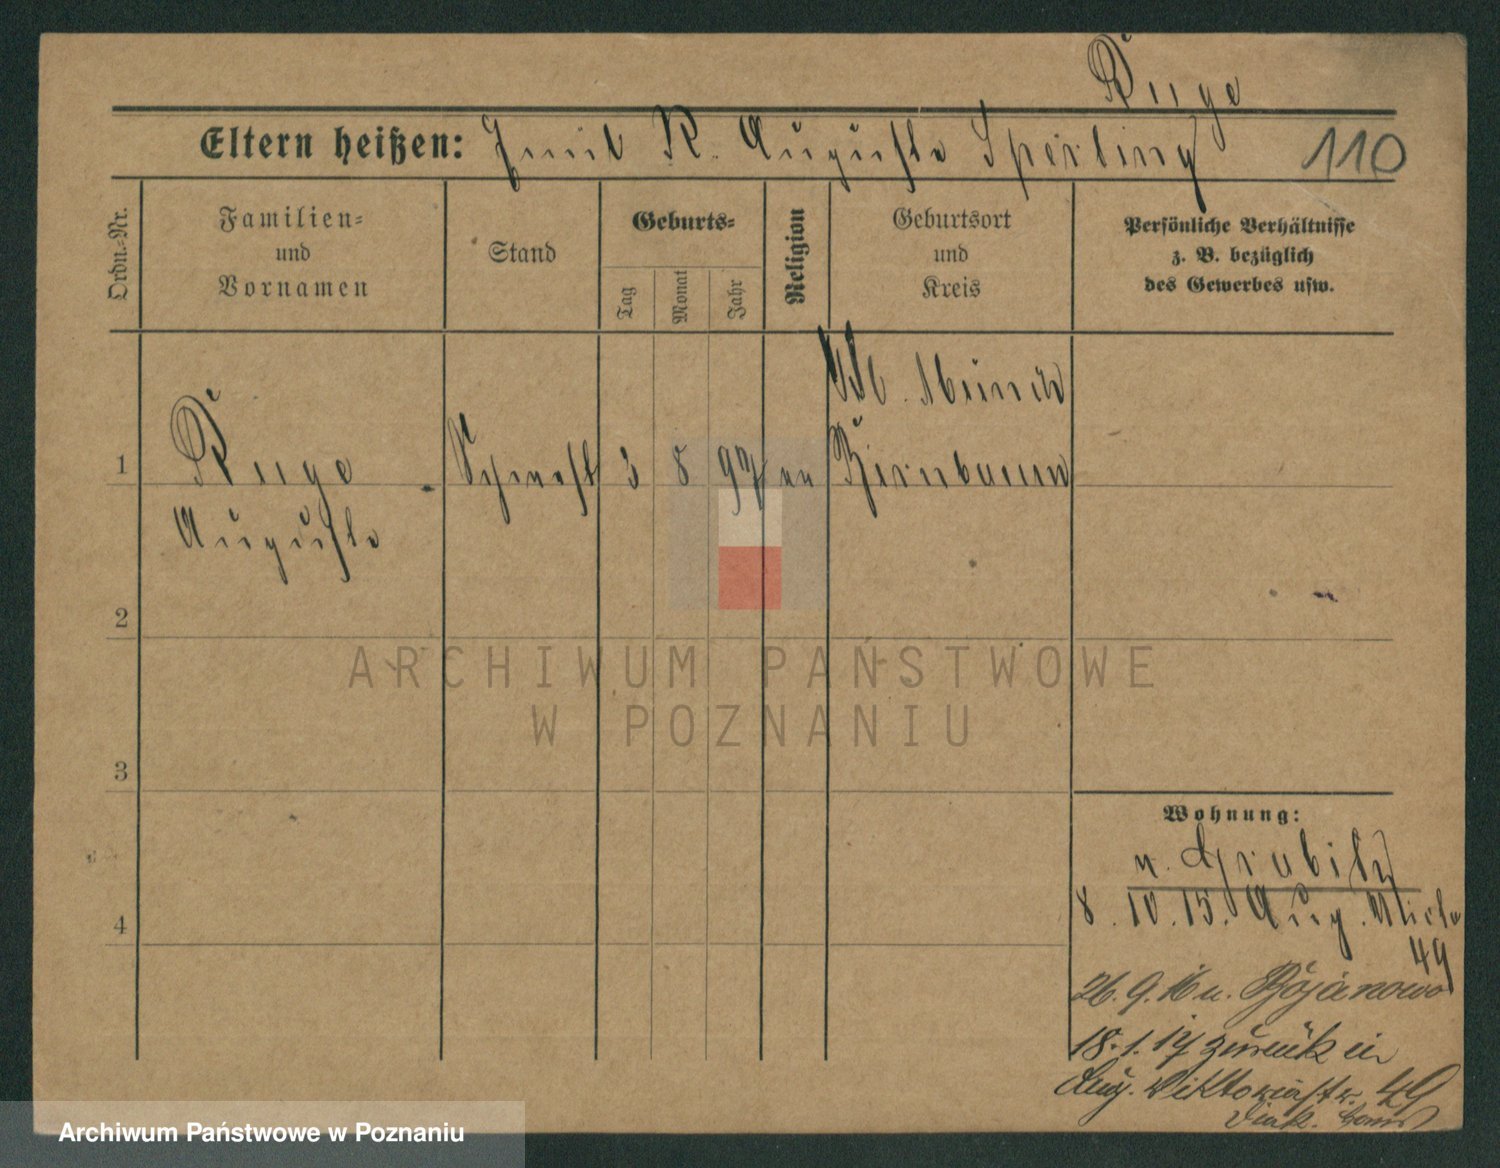 Ruge
Eltern heißen: Emil R. Auguste Sperling 110
Ordn.-Nr.
Familien-
und
Vornamen
Stand
Geburts-
Tag
Monat
Jahr
Religion
Geburtsort
und
Kreis
Persönliche Verhältnisse
z. B. bezüglich
des Gewerbes usw.
1
Ruge
Auguste
3 8 97
Birnbaum
2
ARCHIWUM PAŃSTWOWE
W POZNANIU
3
4
Wohnung:
8.10.15. Aug.
49
26.9.16 n. Bojanowo
18.1.17 zurück in
Aug. Viktoriastr. 49
Archiwum Państwowe w Poznaniu